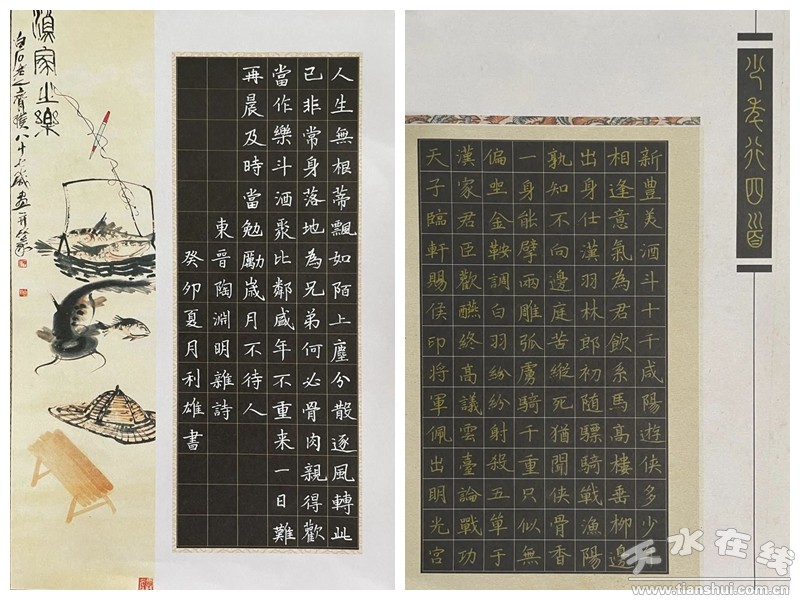 漁家之樂
白石老人齊璜八十七歲畫并篆
人生無根蒂飄如陌上塵分散逐風轉此
已非常身落地為兄弟何必骨肉親得歡
當作樂斗酒聚比鄰盛年不重来一日難
再晨及時當勉勵歲月不待人
東晋陶淵明雜詩
癸卯夏月利雄書
少年行四首
新豊美酒斗十千咸陽遊侠多少年
相逢意氣為君飲系馬高樓垂柳邊
出身仕漢羽林郎初随驃騎戰漁陽
孰知不向邊庭苦縱死猶聞侠骨香
一身能擘兩雕弧虜騎千重只似無
偏坐金鞍調白羽紛紛射殺五單于
漢家君臣歡醼終高議雲臺論戰功
天子臨軒賜侯印將軍佩出明光宮
天水在线
www.tianshui.com.cn